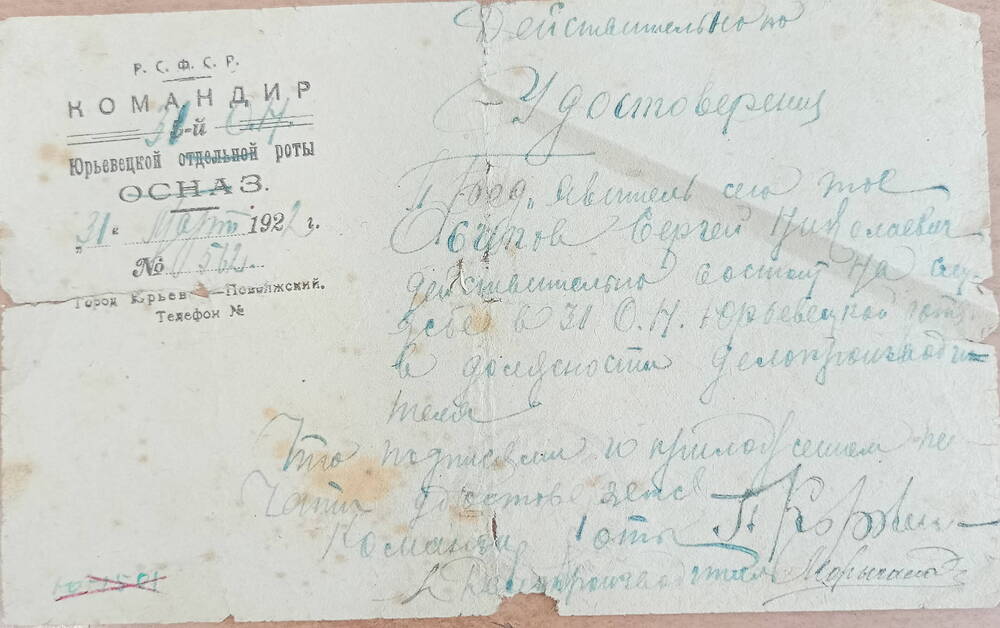 Р. С. Ф. С. Р.
КОМАНДИР
31 5-й О.Н.
Юрьевецкой отдельной роты
ОСНАЗ.
„31" Март 1922 г.
№ 562
Город Юрьев —Повольжский.
Телефон №
Действительно по
Удостоверения
Пред„явитель сего тов
Осипов Сергей Николаевич
действительно состоит на слу-
жбе в 31 О.Н. Юрьевецкой роты
в должности делопроизводи-
теля
Что подписями и приложением пе-
чати удостоверяется
Командир роты
Делопроизводитель